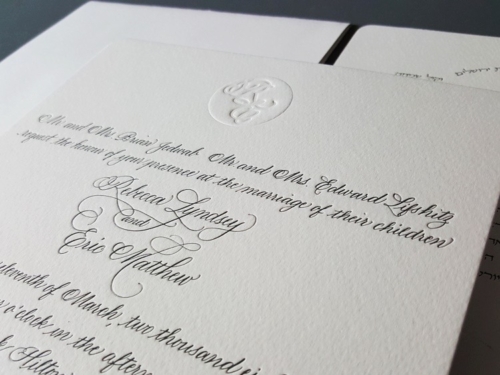 Mr. and Mrs. Brian Jedwab Mr and Mrs Edward Lifshitz
request the honour of your presence at the marriage of their children
Rebecca Lyndsey
and
Eric Matthew
of March, two thousand
o'clock in the
Hilton